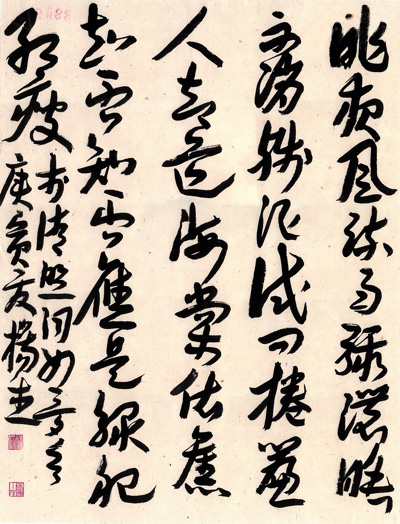 昨夜風疏雨驟濃睡
不消殘酒試問捲簾
人却道海棠依舊
知否知否應是綠肥
紅瘦 清照詞如夢令
庚寅 楊